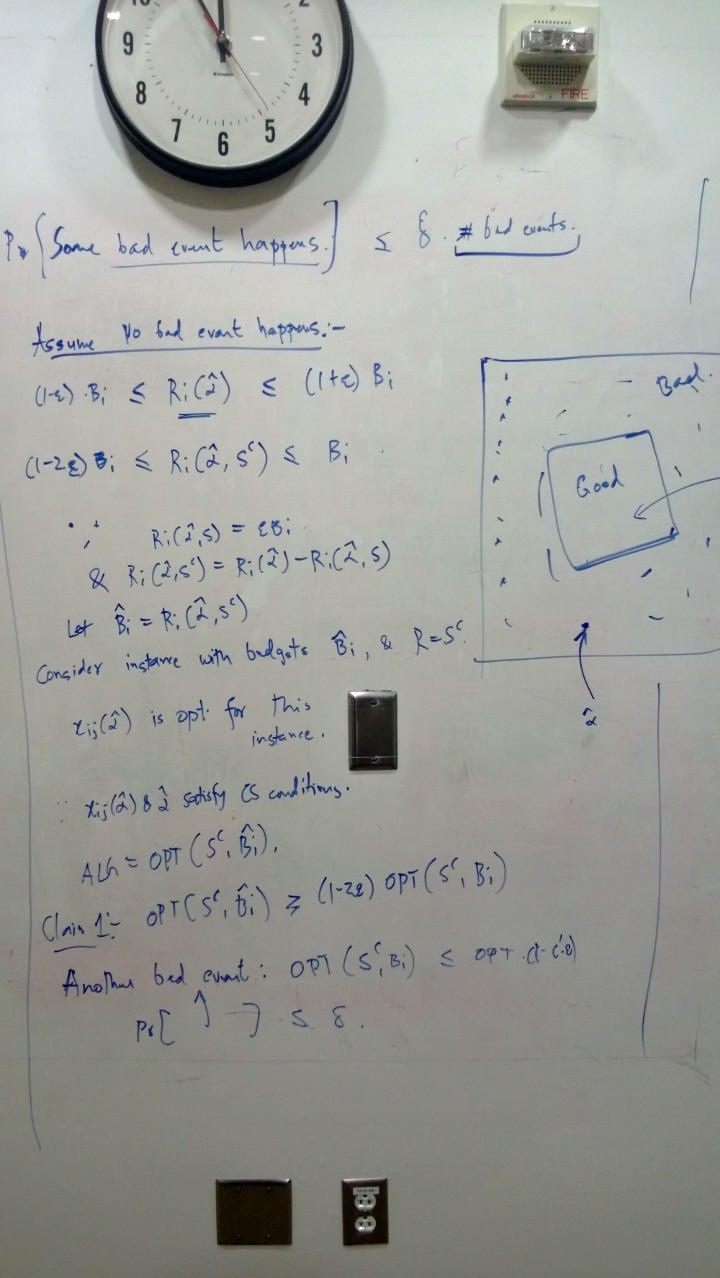 10
2
9
3
8
4
7
6
5
FIRE
Pr [Some bad event happens.] ≤ δ. # bad events.
Assume No bad event happens:-
(1-ε) Bi ≤ Ri(α̂) ≤ (1+ε) Bi
(1-2ε) Bi ≤ Ri(α̂, Sᶜ) ≤ Bi
∵ Ri(α̂,S) = εBi
& Ri(α̂,Sᶜ) = Ri(α̂) - Ri(α̂, S)
Let B̂i = Ri(α̂, Sᶜ)
Consider instance with budgets B̂i, & R=Sᶜ.
xij(α̂) is opt. for this
instance.
∵ xij(α̂) & α̂ satisfy CS conditions.
ALG = OPT(Sᶜ, B̂i).
Claim 1:- OPT(Sᶜ, B̂i) ≥ (1-2ε) OPT(Sᶜ, Bi)
Another bad event: OPT(Sᶜ, Bi) ≤ OPT.(1-c'.ε)
Pr[ ↑ ] ≤ δ.
Bad.
Good
α̂